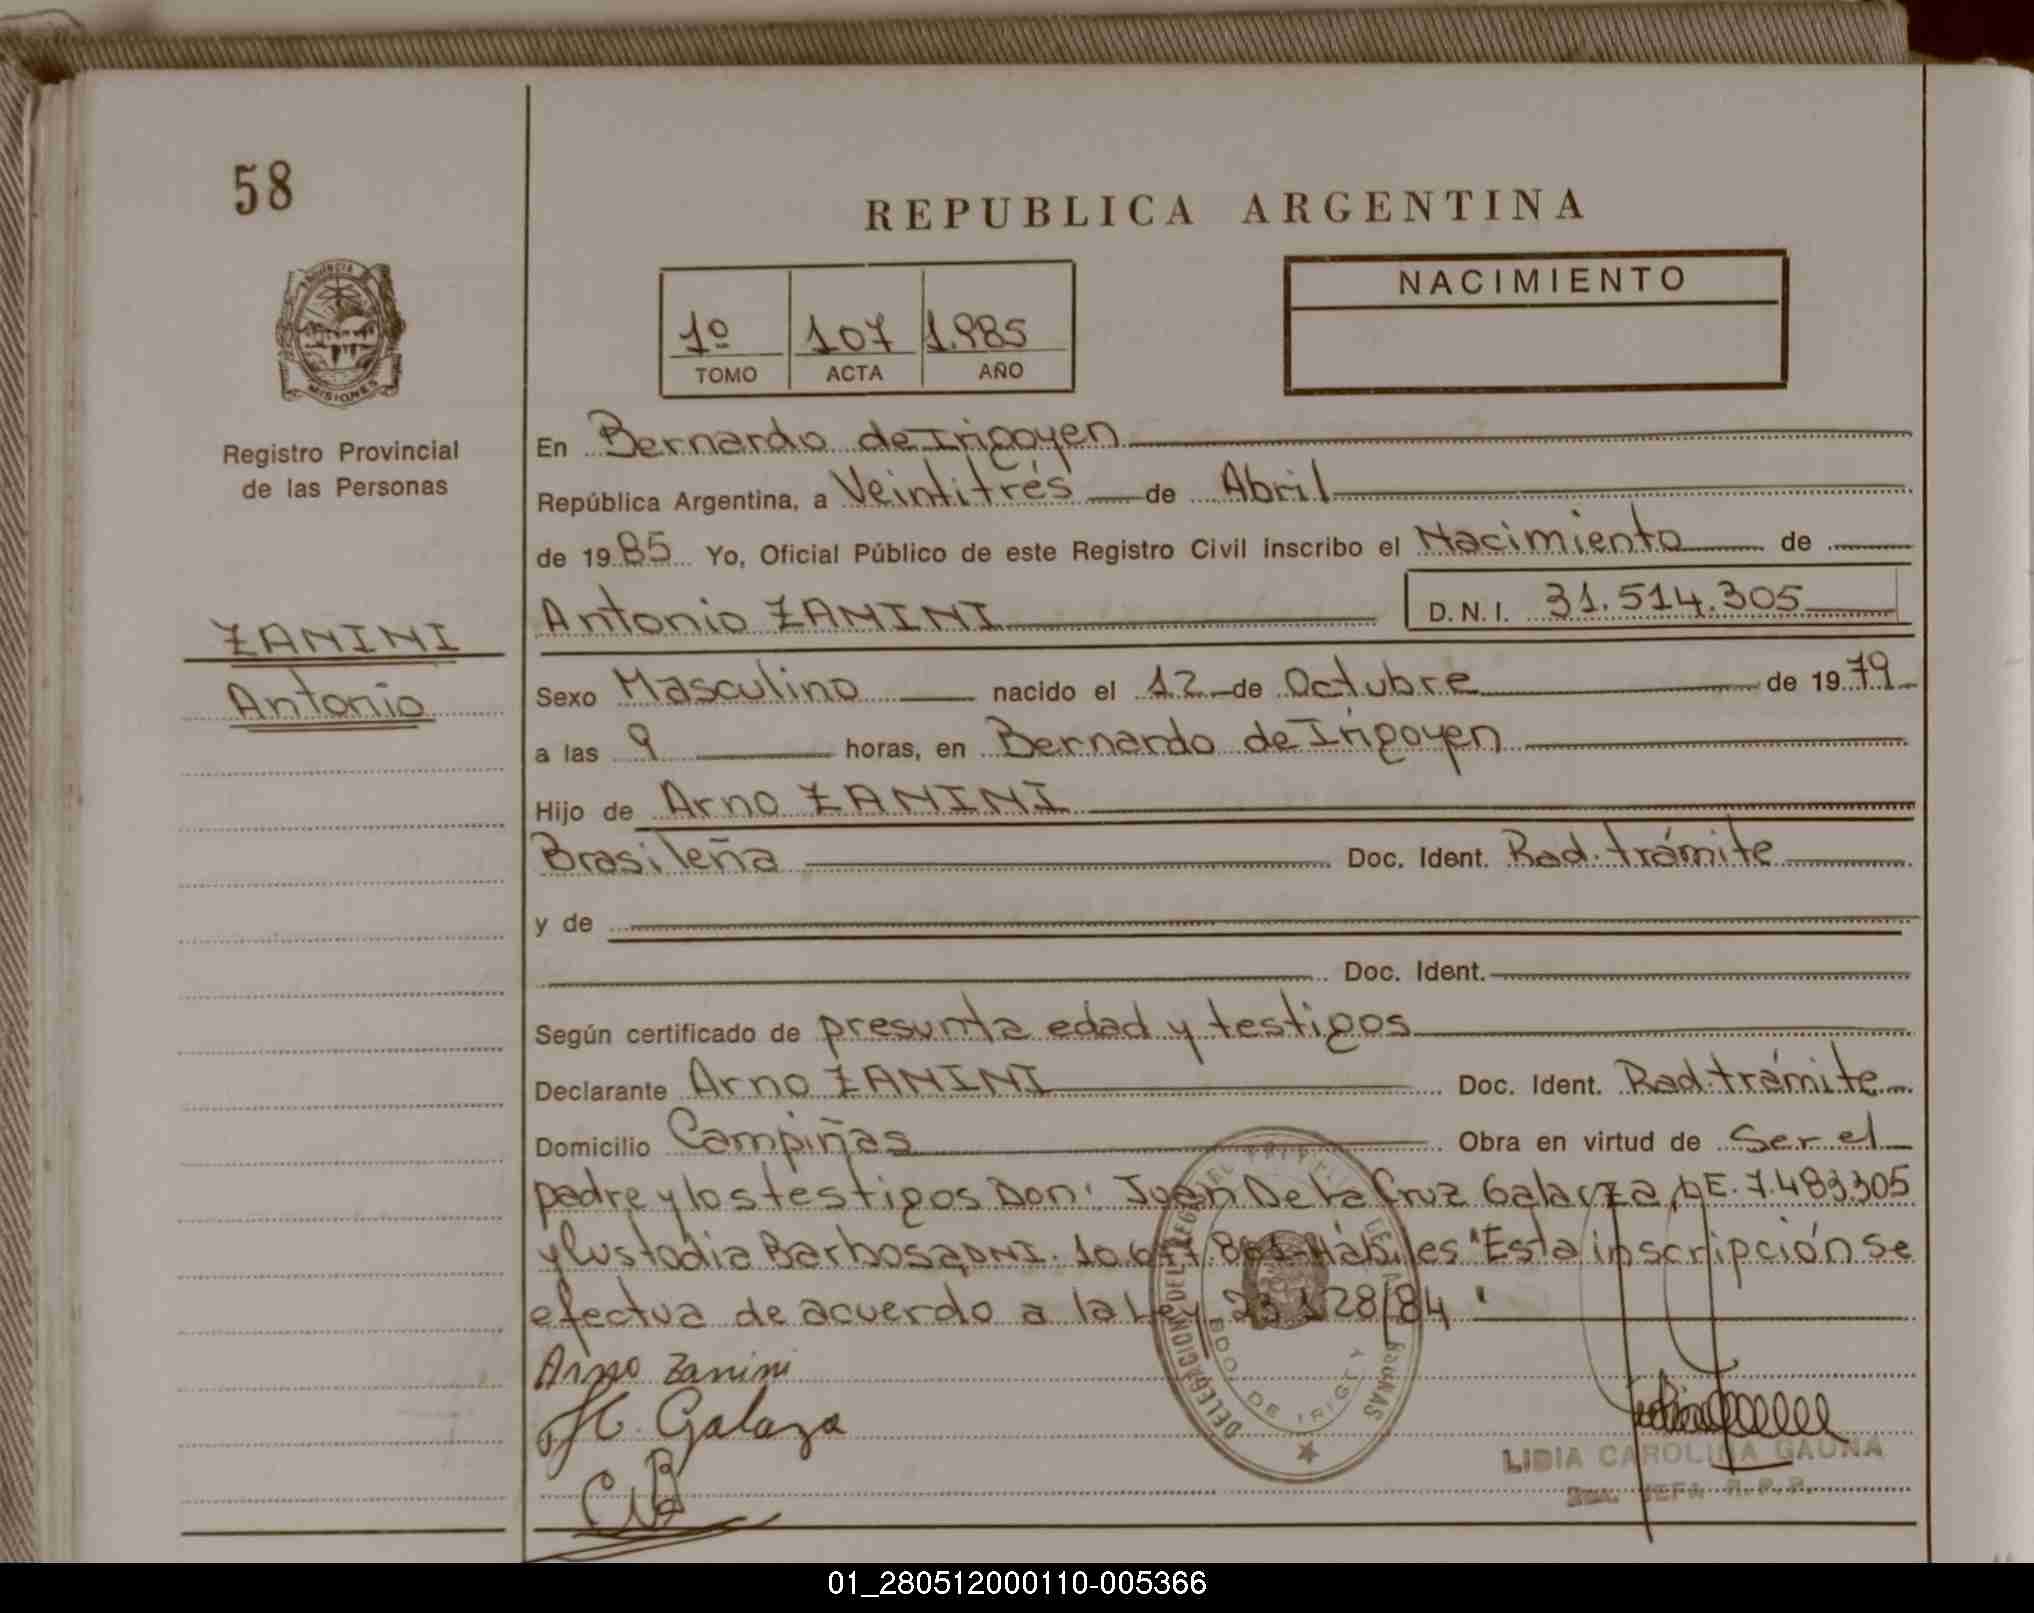 58
REPUBLICA ARGENTINA
NACIMIENTO
1º 107 1.985
TOMO ACTA AÑO
PROVINCIA
MISIONES
Registro Provincial
de las Personas
ZANINI
Antonio
En Bernardo de Irigoyen
República Argentina, a Veintitrés de Abril
de 1985 Yo, Oficial Público de este Registro Civil inscribo el Nacimiento de
Antonio ZANINI D.N.I. 31.514.305
Sexo Masculino nacido el 12 de Octubre de 1979
a las 9 horas, en Bernardo de Irigoyen
Hijo de Arno ZANINI
Brasileña Doc. Ident. Rad. trámite
y de
Doc. Ident.
Según certificado de presunta edad y testigos
Declarante Arno ZANINI Doc. Ident. Rad. trámite
Domicilio Campiñas Obra en virtud de Ser el
padre y los testigos Don: Juan De la Cruz Galarza, LE. 7.483.305
y Custodia Barbosa DNI. Hábiles "Esta inscripción se
efectua de acuerdo a la Ley 23.128/84"
Arno Zanini
Galarza
DELEGACION DEL REGISTRO PROVINCIAL DE LAS PERSONAS
BDO. DE IRIGEY
LIDIA CAROLINA GAUNA
JEFA R.P.P.
01_280512000110-005366